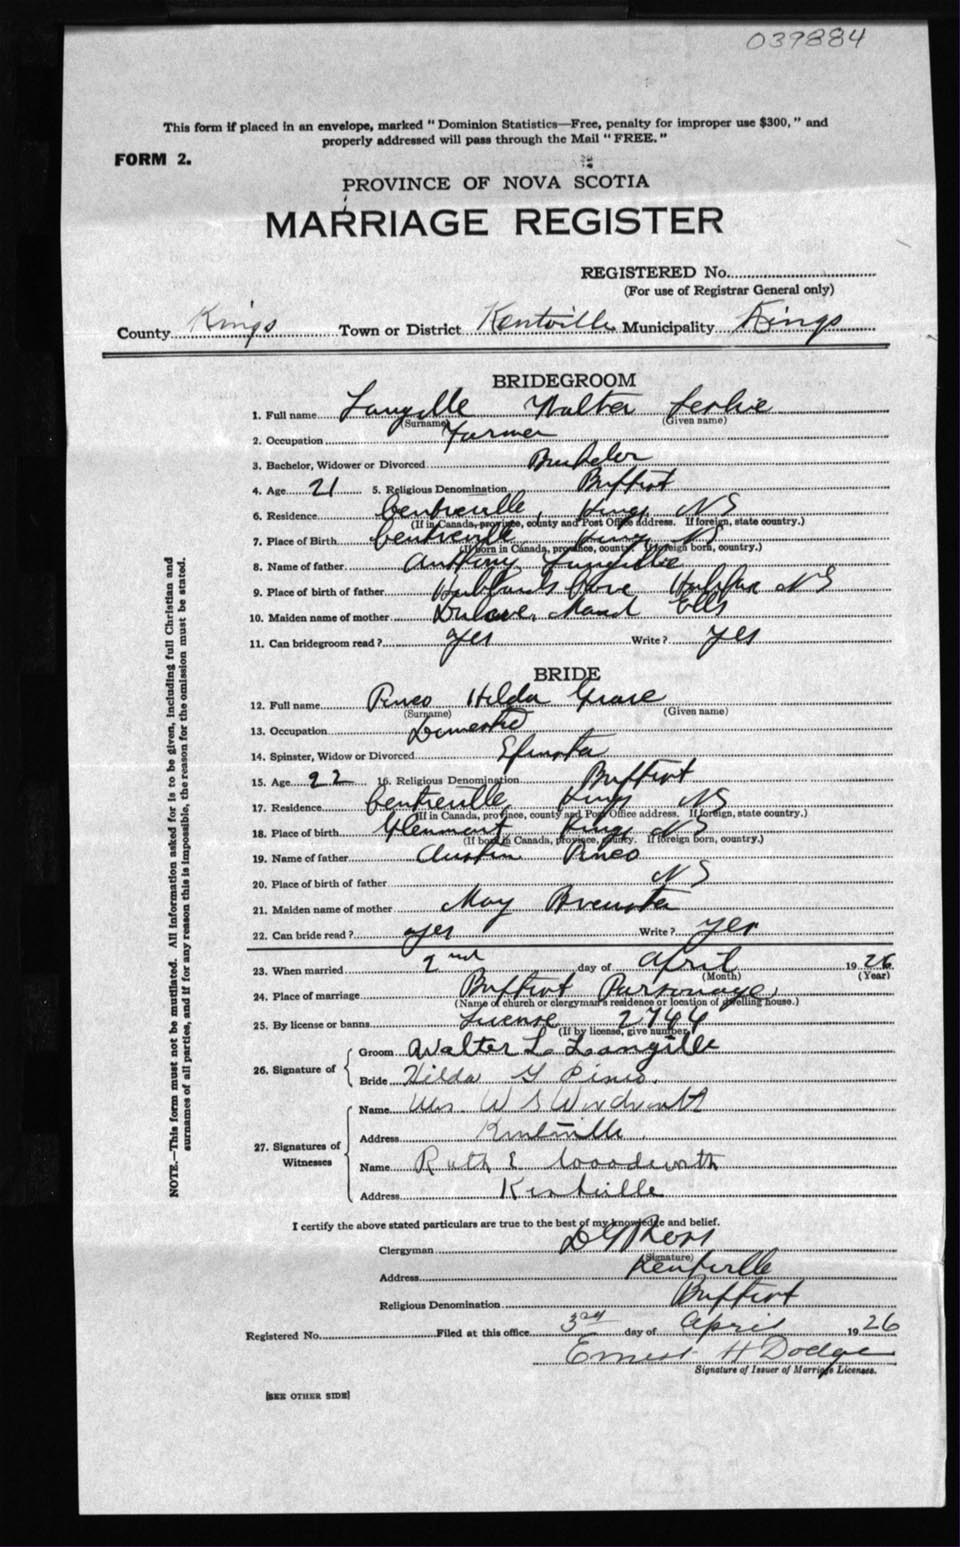 039884
This form if placed in an envelope, marked "Dominion Statistics—Free, penalty for improper use $300," and
properly addressed will pass through the Mail "FREE."
FORM 2.
PROVINCE OF NOVA SCOTIA
MARRIAGE REGISTER
REGISTERED No.
(For use of Registrar General only)
County Kings Town or District Kentville Municipality Kings
BRIDEGROOM
1. Full name Langille Walter Leslie
(Surname) (Given name)
2. Occupation Farmer
3. Bachelor, Widower or Divorced Bachelor
4. Age 21 5. Religious Denomination Baptist
6. Residence Centreville, Kings NS
(If in Canada, province, county and Post Office address. If foreign, state country.)
7. Place of Birth Centreville Kings NS
(If born in Canada, province, county. If foreign born, country.)
8. Name of father Anthony Langille
9. Place of birth of father Hubbards Cove Halifax NS
10. Maiden name of mother Maud Ells
11. Can bridegroom read? yes Write? yes
BRIDE
12. Full name Pineo Hilda Grace
(Surname) (Given name)
13. Occupation Domestic
14. Spinster, Widow or Divorced Spinster
15. Age 22 16. Religious Denomination Baptist
17. Residence Centreville Kings NS
(If in Canada, province, county and Post Office address. If foreign, state country.)
18. Place of birth Glenmont Kings NS
(If born in Canada, province, county. If foreign born, country.)
19. Name of father Austin Pineo
20. Place of birth of father NS
21. Maiden name of mother May Brewster
22. Can bride read? yes Write? yes
23. When married 2nd day of April 1926
(Month) (Year)
24. Place of marriage Baptist Parsonage,
(Name of church or clergyman's residence or location of dwelling house.)
25. By license or banns License 2794
(If by license, give number)
26. Signature of
Groom Walter L. Langille
Bride Hilda G Pineo.
27. Signatures of Witnesses
Name Mrs W S Woodworth
Address Kentville.
Name Ruth E Woodworth
Address Kentville
I certify the above stated particulars are true to the best of my knowledge and belief.
Clergyman D G Ross
(Signature)
Address Kentville
Religious Denomination Baptist
Registered No. Filed at this office 3rd day of April 1926
Ernest H Dodge
Signature of Issuer of Marriage Licenses.
[SEE OTHER SIDE]
NOTE.—This form must not be mutilated. All information asked for is to be given, including full Christian and
surnames of all parties, and if for any reason this is impossible, the reason for the omission must be stated.